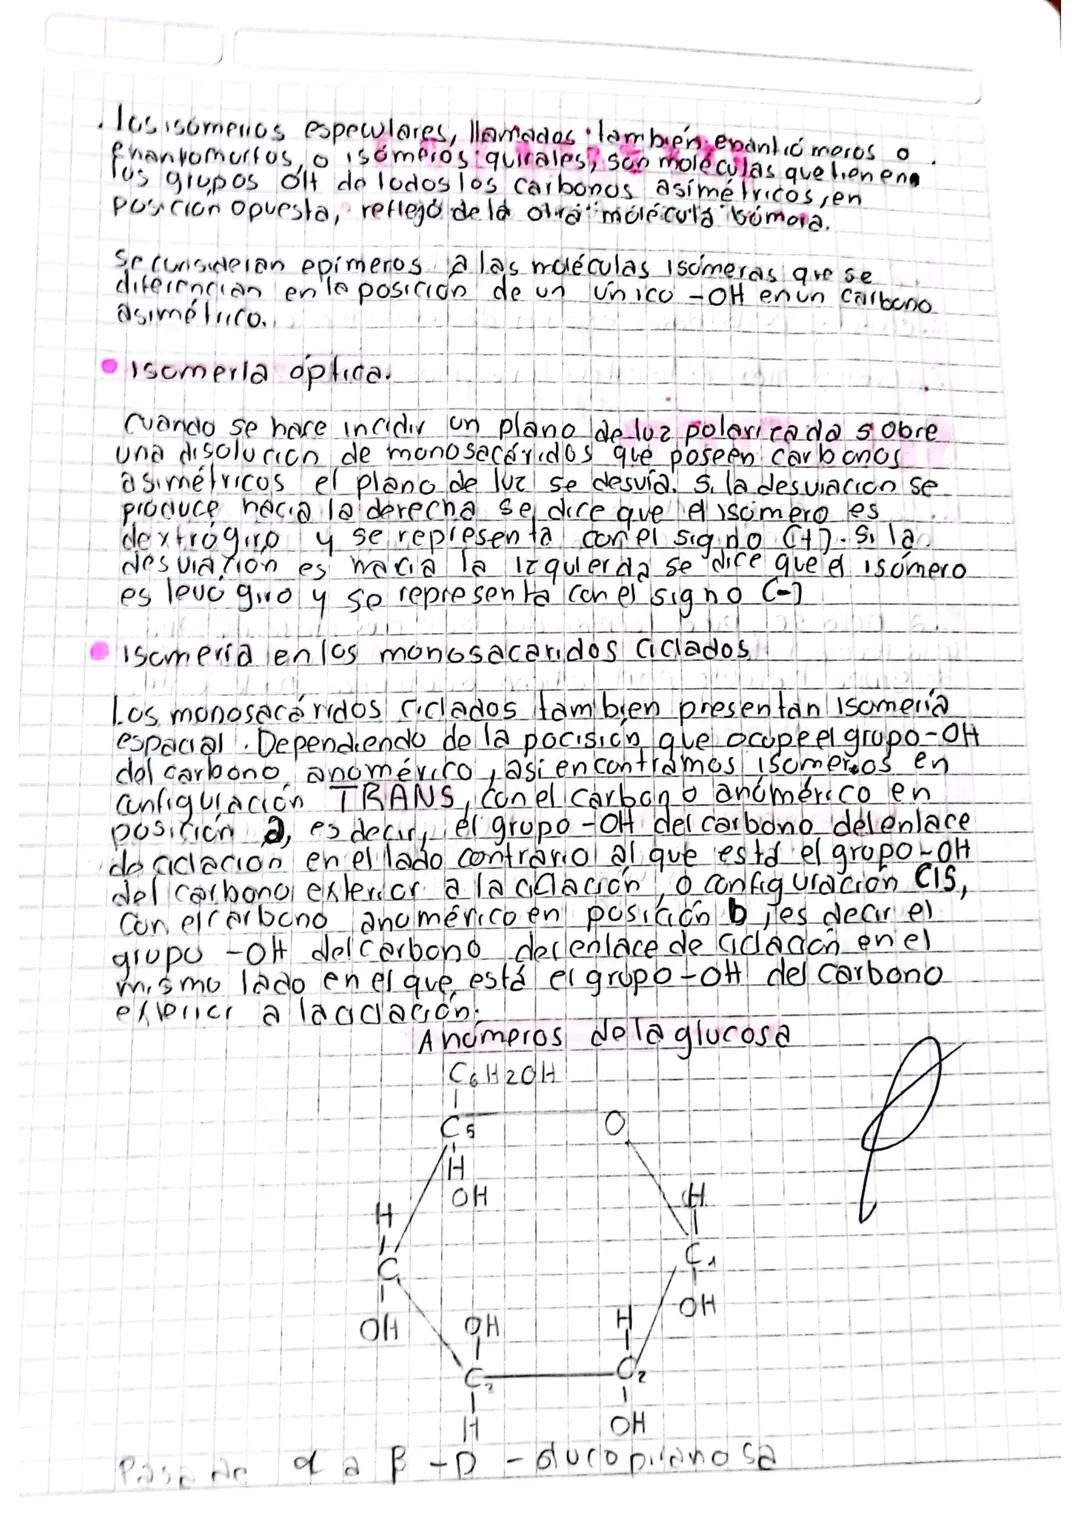 . los isómeros especulares, llamados también enantiómeros o
enantomorfos, o isómeros quirales, son moléculas que tienen
los grupos OH de todos los carbonos asimétricos, en
posición opuesta, reflejo de la otra molécula isómera.
Se consideran epímeros a las moléculas isómeras que se
diferencian en la posición de un único -OH en un carbono
asimétrico.
• Isomería óptica.
Cuando se hace incidir un plano de luz polarizada sobre
una disolución de monosacáridos que poseen carbonos
asimétricos el plano de luz se desvía. Si la desviación se
produce hacia la derecha se dice que el isómero es
dextrógiro y se representa con el signo (+). Si la
desviación es hacia la izquierda se dice que el isómero
es levogiro y se representa con el signo (-)
• Isomería en los monosacaridos Ciclados
Los monosacáridos ciclados tambien presentan isomería
espacial. Dependiendo de la pocision que ocupe el grupo-OH
del carbono anomérico, asi encontramos isomeros en
configuración TRANS, con el carbono anómérico en
posición a, es decir, el grupo -OH del carbono del enlace
de ciclacion en el lado contrario al que está el grupo-OH
del carbono exterior a la ciclación, o configuración CIS,
Con el carbono anomérico en posición b, es decir el
grupo -OH del carbono del enlace de ciclación en el
mismo lado en el que está el grupo-OH del carbono
exterior a la ciclación.
Anómeros de la glucosa
C6H2OH
C5 O
H
OH H
H
C C1
OH OH
OH H
C3 C2
H OH
Pasa de α a β -D - Glucopiranosa